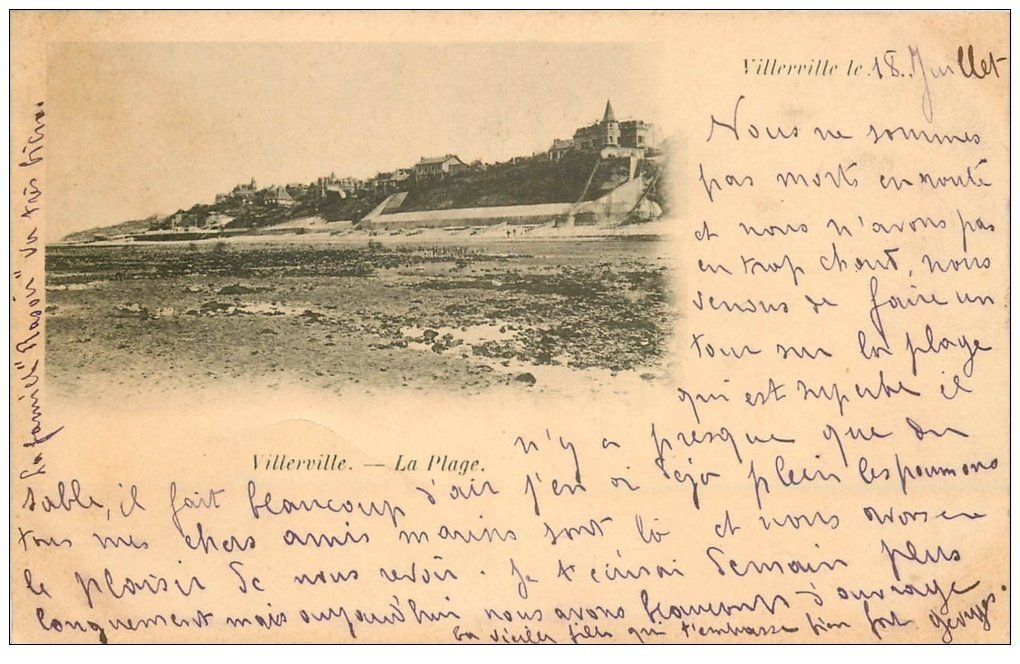 Villerville le 18. Juillet
Nous ne sommes
pas morts en route
et nous n'avons pas
eu trop chaud, nous
venons de faire un
tour sur la plage
qui est superbe il
Villerville. — La Plage.
n'y a presque que du
sable, il fait beaucoup d'air j'en ai déjà plein les poumons
tous mes chers amis marins sont là et nous avons eu
le plaisir de nous revoir. Je t'écrirai demain plus
longuement mais aujourd'hui nous avons beaucoup d'ouvrage
ta vieille fille qui t'embrasse bien fort Georges.
La famille "Rasoir" va très bien.